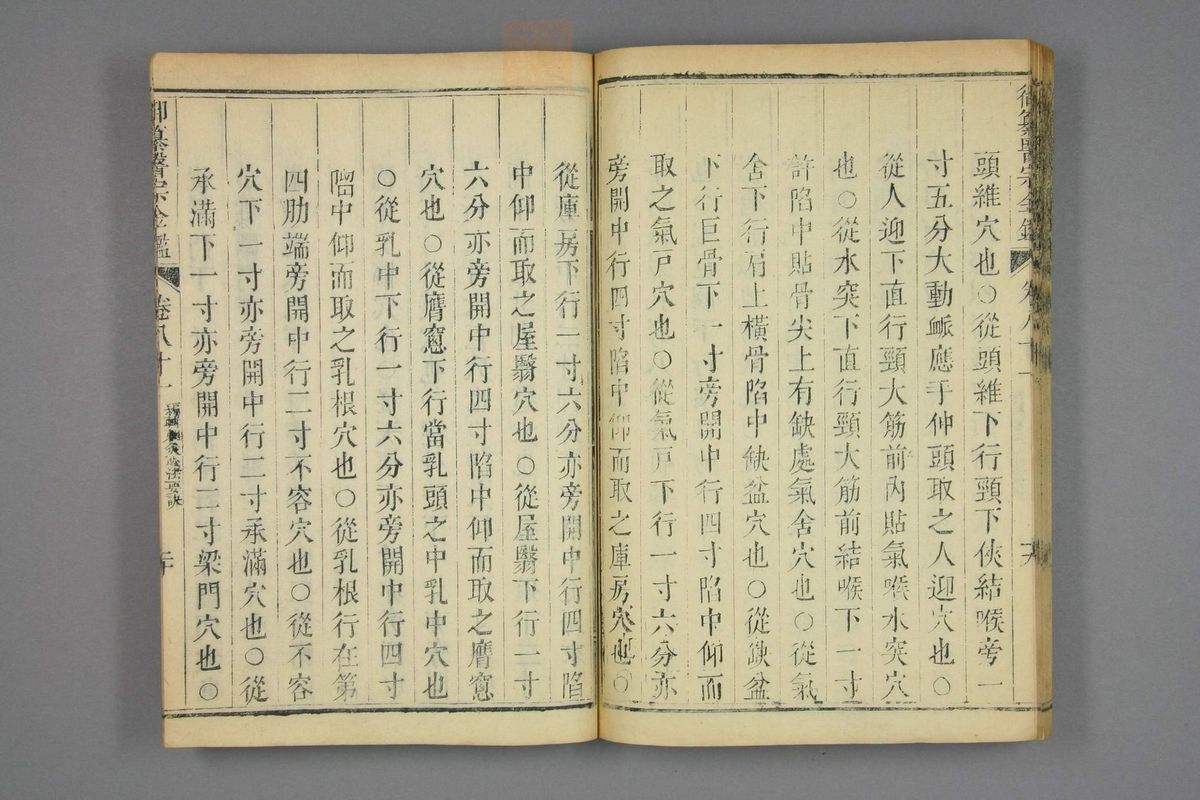 御纂醫宗金鑑
卷八十一
頭維穴也○從頭維下行頸下俠結喉旁一
寸五分大動脈應手伸頭取之人迎穴也○
從人迎下直行頸大筋前內貼氣喉水突穴
也○從水突下直行頸大筋前結喉下一寸
許陷中貼骨尖上有缺處氣舍穴也○從氣
舍下行肩上橫骨陷中缺盆穴也○從缺盆
下行巨骨下一寸旁開中行四寸陷中仰而
取之氣戸穴也○從氣戸下行一寸六分亦
旁開中行四寸陷中仰而取之庫房穴也○
從庫房下行一寸六分亦旁開中行四寸陷
中仰而取之屋翳穴也○從屋翳下行一寸
六分亦旁開中行四寸陷中仰而取之膺窻
穴也○從膺窻下行當乳頭之中乳中穴也
○從乳中下行一寸六分亦旁開中行四寸
陷中仰而取之乳根穴也○從乳根行在第
四肋端旁開中行二寸不容穴也○從不容
穴下一寸亦旁開中行二寸承滿穴也○從
承滿下一寸亦旁開中行二寸梁門穴也○
御纂醫宗金鑑
卷八十一
刺灸心法要訣